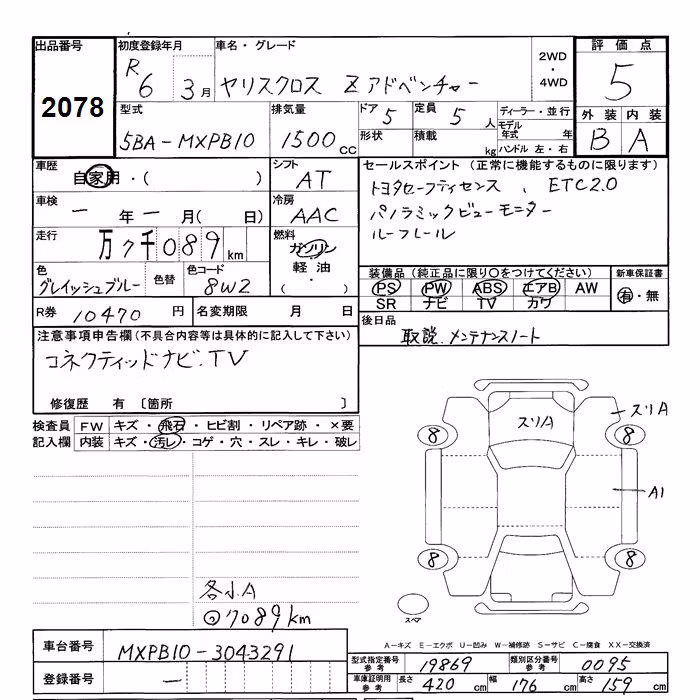 出品番号
2078
初度登録年月
R 6 3月
車名・グレード
ヤリスクロス Z アドベンチャー
2WD
・
4WD
評価点
5
外装 内装
B A
型式
5BA-MXPB10
排気量
1500 cc
ドア 5
定員 5 人
ディーラー・並行
モデル年式 年
形状
積載 kg
ハンドル 左・右
車歴
自家用・( )
シフト
AT
車検
一年一月( 日)
冷房
AAC
走行
万7千089 km
燃料
ガソリン
軽油
( ・ )
色
グレイッシュブルー
色替
色コード
8W2
R券 10470 円
名変期限 月 日
セールスポイント (正常に機能するものに限ります)
トヨタセーフティセンス 、 ETC2.0
パノラミックビューモニター
ルーフレール
装備品 (純正品に限り○をつけてください)
新車保証書
PS PW ABS エアB AW
SR ナビ TV カワ
有・無
後日品
取説.メンテナンスノート
注意事項申告欄(不具合内容等は具体的に記入して下さい)
コネクティッドナビ.TV
修復歴 有 〔箇所 〕
検査員記入欄
FW キズ・飛石・ヒビ割・リペア跡・×要
内装 キズ・汚レ・コゲ・穴・スレ・キレ・破レ
スリA
スリA
8 8
A1
8 8
スペア
各小A
7089km
A-キズ E-エクボ U-凹み W-補修跡 S-サビ C-腐食 XX-交換済
車台番号 MXPB10-3043291
登録番号 一
型式指定番号
参考
19869
類別区分番号
参考
0095
車庫証明用
参考
長さ 420 cm 幅 176 cm 高さ 159 cm